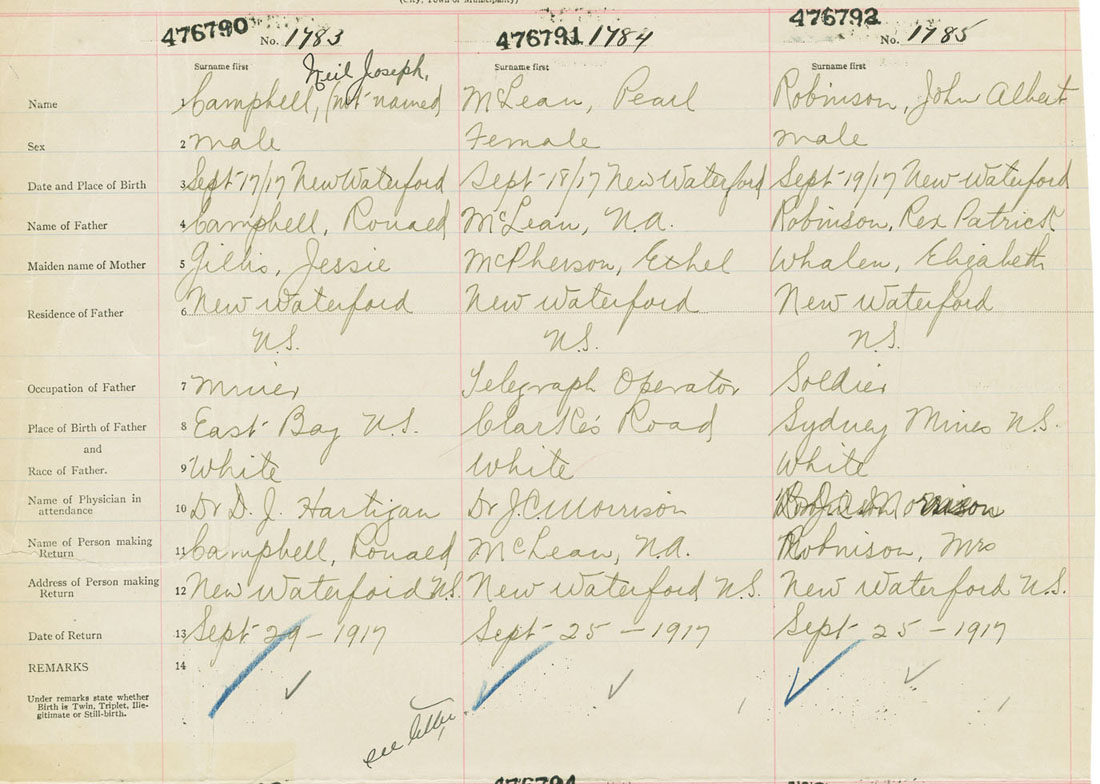 (City, Town or Municipality)
476790 No. 1783 476791 1784 476792 No. 1785
Surname first Neil Joseph, Surname first Surname first
Name 1 Campbell, (not named McLean, Pearl Robinson, John Albert
Sex 2 male Female male
Date and Place of Birth 3 Sept 17/17 New Waterford Sept 18/17 New Waterford Sept 19/17 New Waterford
Name of Father 4 Campbell, Ronald McLean, N.A. Robinson, Rex Patrick
Maiden name of Mother 5 Gillis, Jessie McPherson, Ethel Whalen, Elizabeth
Residence of Father 6 New Waterford New Waterford New Waterford
N.S. N.S. N.S.
Occupation of Father 7 Miner Telegraph Operator Soldier
Place of Birth of Father 8 East Bay N.S. Clarke's Road Sydney Mines N.S.
and
Race of Father. 9 White White White
Name of Physician in
attendance 10 Dr D. J. Hartigan Dr J.C. Morrison Morrison
Name of Person making
Return 11 Campbell, Ronald McLean, N.A. Robinson, Mrs
Address of Person making
Return 12 New Waterford N.S. New Waterford N.S. New Waterford N.S.
Date of Return 13 Sept 29 - 1917 Sept 25 - 1917 Sept 25 - 1917
REMARKS 14
Under remarks state whether
Birth is Twin, Triplet, Ille-
gitimate or Still-birth.
see letter